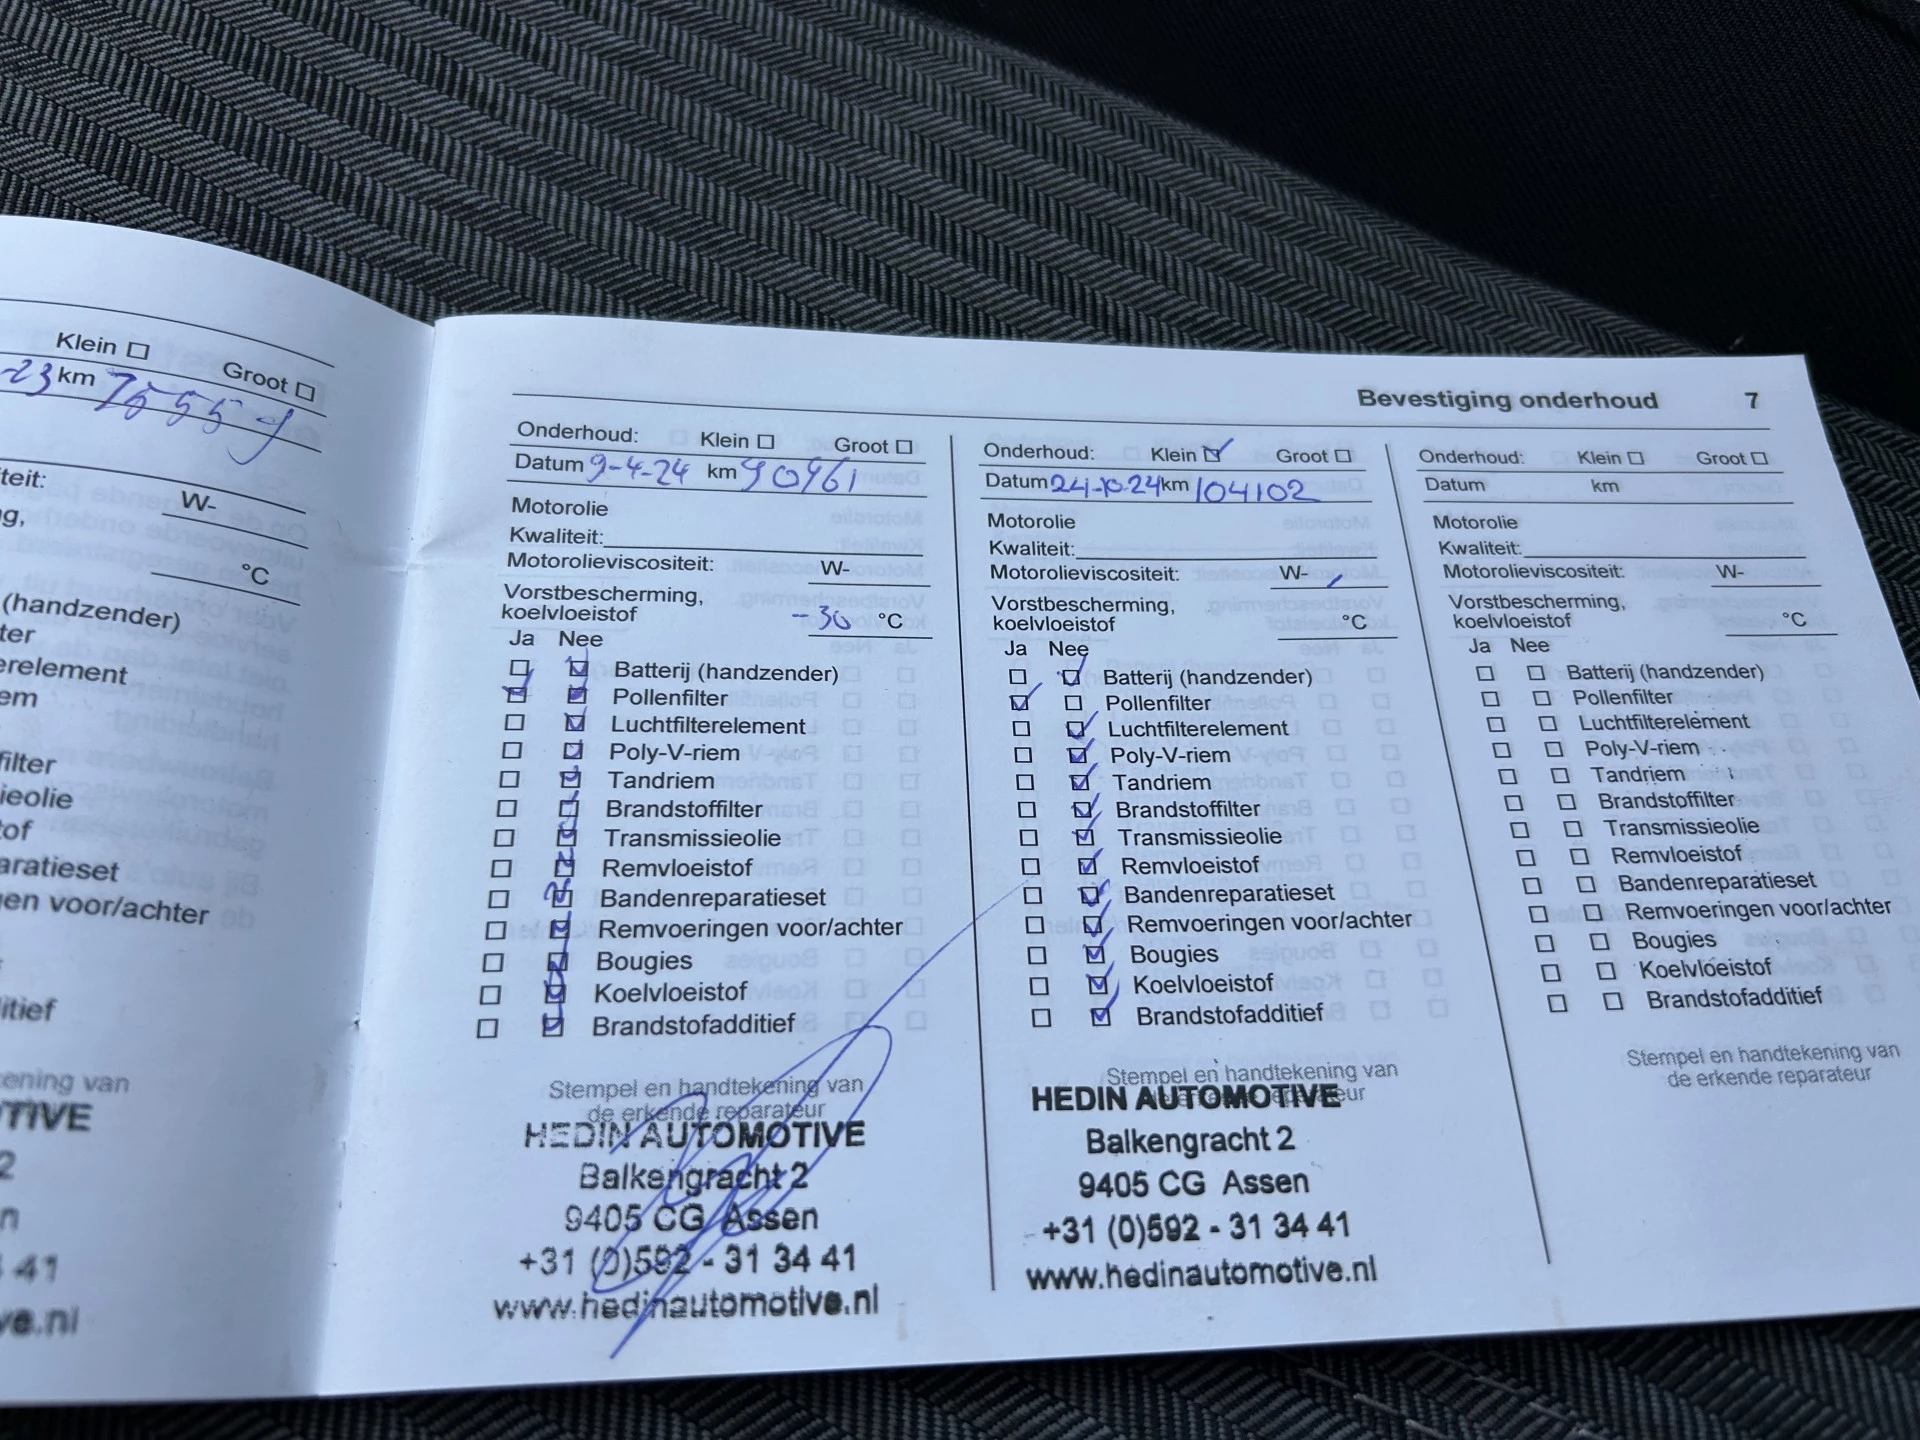 Klein Groot
-23 km 75559
teit:
W-
g,
°C
(handzender)
ter
erelement
em
filter
ieolie
tof
aratieset
en voor/achter
itief
ening van
TIVE
2
n
41
ve.nl
Bevestiging onderhoud 7
Onderhoud: Klein Groot
Datum 9-4-24 km 90961
Motorolie
Kwaliteit:
Motorolieviscositeit: W-
Vorstbescherming,
koelvloeistof -30 °C
Ja Nee
Batterij (handzender)
Pollenfilter
Luchtfilterelement
Poly-V-riem
Tandriem
Brandstoffilter
Transmissieolie
Remvloeistof
Bandenreparatieset
Remvoeringen voor/achter
Bougies
Koelvloeistof
Brandstofadditief
Stempel en handtekening van
de erkende reparateur
HEDIN AUTOMOTIVE
Balkengracht 2
9405 CG Assen
+31 (0)592 - 31 34 41
www.hedinautomotive.nl
Onderhoud: Klein Groot
Datum 24-10-24 km 104102
Motorolie
Kwaliteit:
Motorolieviscositeit: W-
Vorstbescherming,
koelvloeistof °C
Ja Nee
Batterij (handzender)
Pollenfilter
Luchtfilterelement
Poly-V-riem
Tandriem
Brandstoffilter
Transmissieolie
Remvloeistof
Bandenreparatieset
Remvoeringen voor/achter
Bougies
Koelvloeistof
Brandstofadditief
Stempel en handtekening van
de erkende reparateur
HEDIN AUTOMOTIVE
Balkengracht 2
9405 CG Assen
+31 (0)592 - 31 34 41
www.hedinautomotive.nl
Onderhoud: Klein Groot
Datum km
Motorolie
Kwaliteit:
Motorolieviscositeit: W-
Vorstbescherming,
koelvloeistof °C
Ja Nee
Batterij (handzender)
Pollenfilter
Luchtfilterelement
Poly-V-riem
Tandriem
Brandstoffilter
Transmissieolie
Remvloeistof
Bandenreparatieset
Remvoeringen voor/achter
Bougies
Koelvloeistof
Brandstofadditief
Stempel en handtekening van
de erkende reparateur